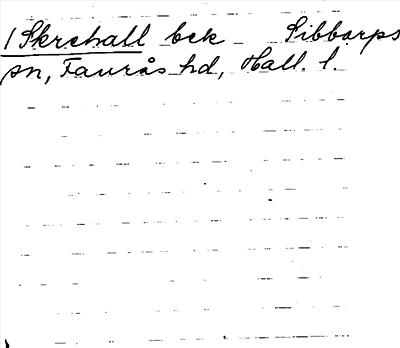 1 Skrehall bek Sibbarps
sn, Faurås hd, Hall. l.